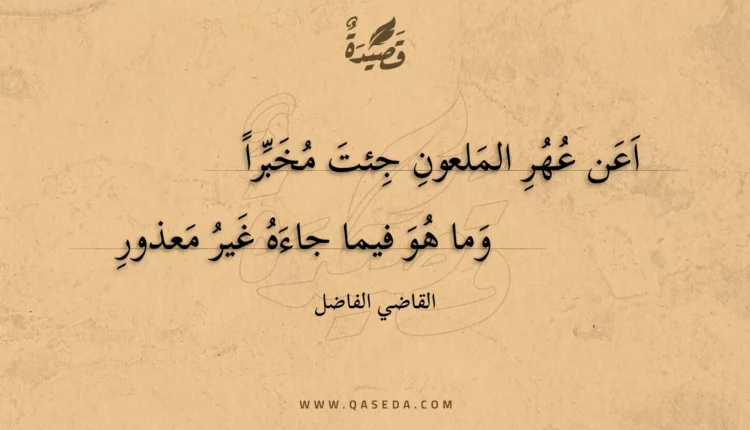 قَصِيدَةٌ
اَعَن عُهُرِ المَلعونِ جِئتَ مُخَبِّراً
وَما هُوَ فيما جاءَهُ غَيرُ مَعذورِ
القاضي الفاضل
WWW.QASEDA.COM